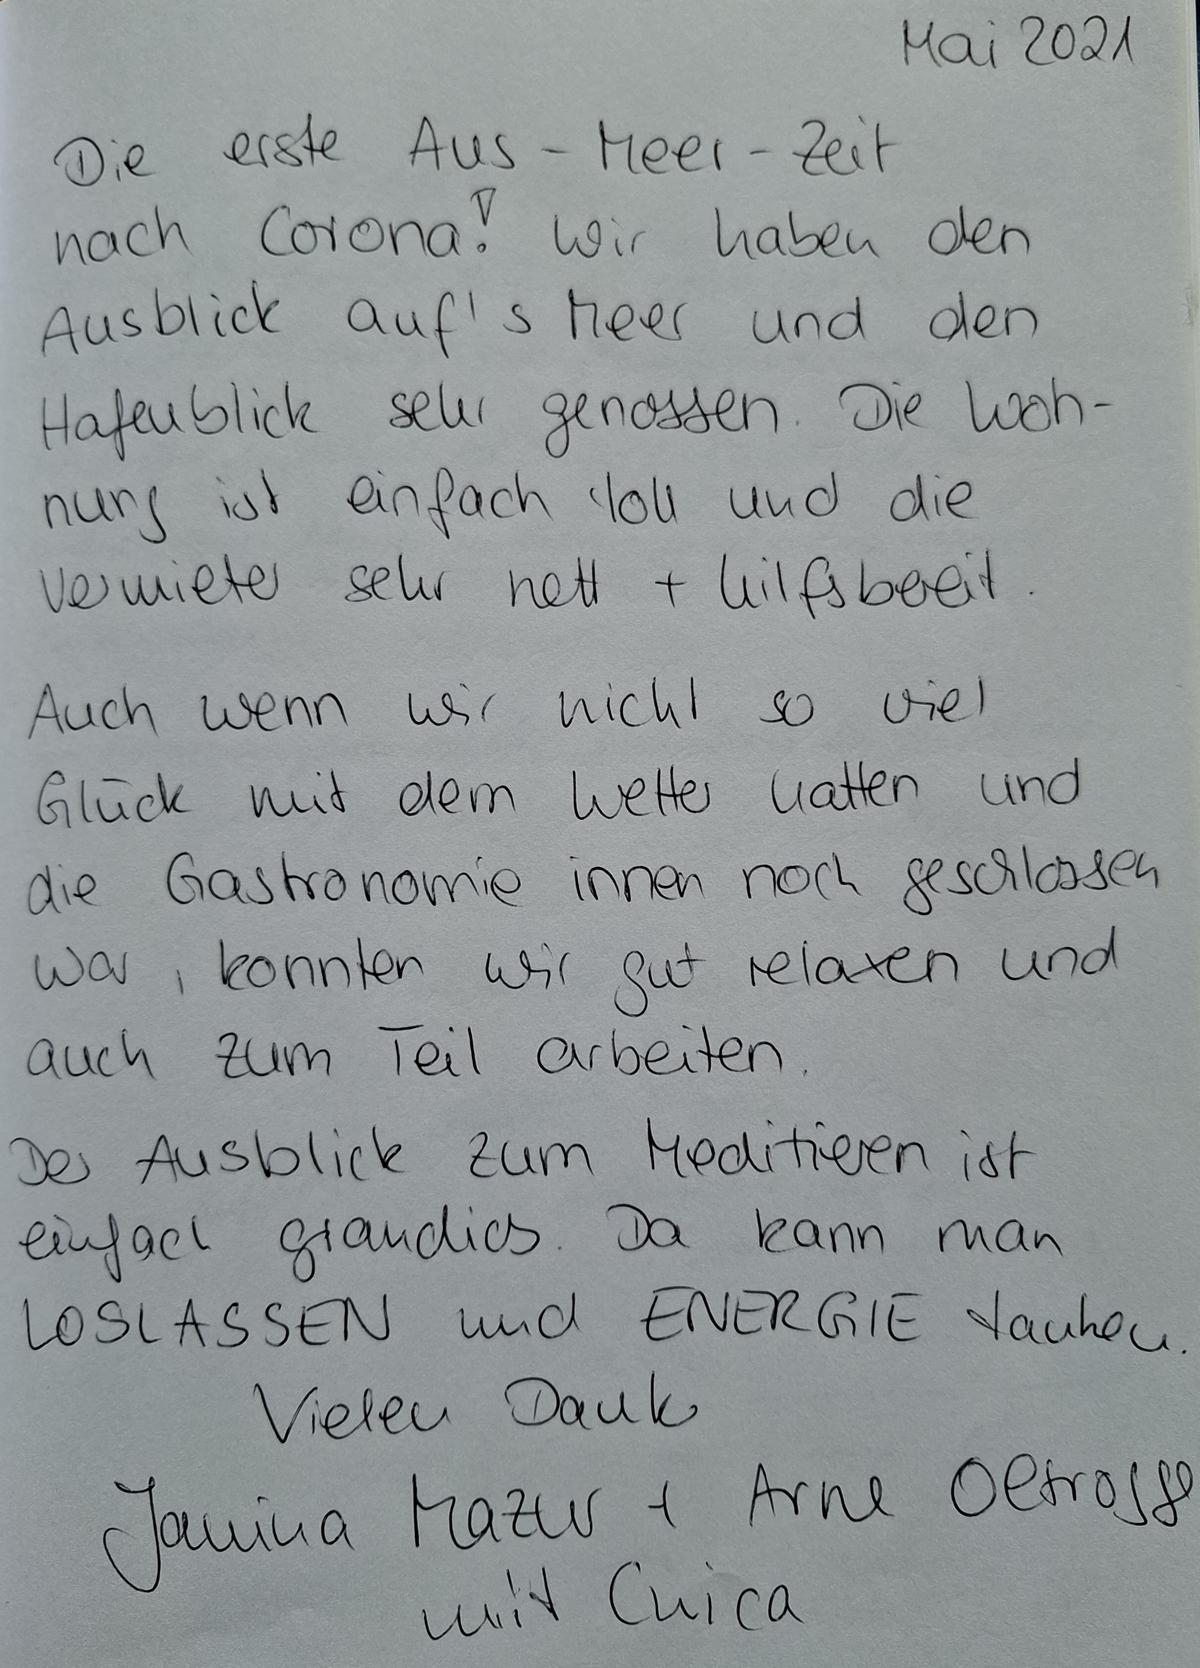 Mai 2021
Die erste Aus-Meer-Zeit
nach Corona! Wir haben den
Ausblick auf's Meer und den
Hafenblick sehr genossen. Die Woh-
nung ist einfach toll und die
Vermieter sehr nett + hilfsbereit.
Auch wenn wir nicht so viel
Glück mit dem Wetter hatten und
die Gastronomie innen noch geschlossen
war, konnten wir gut relaxen und
auch zum Teil arbeiten.
Der Ausblick zum Meditieren ist
einfach grandios. Da kann man
LOSLASSEN und ENERGIE tanken.
Vielen Dank
Janina Mazur + Arne
mit Chica